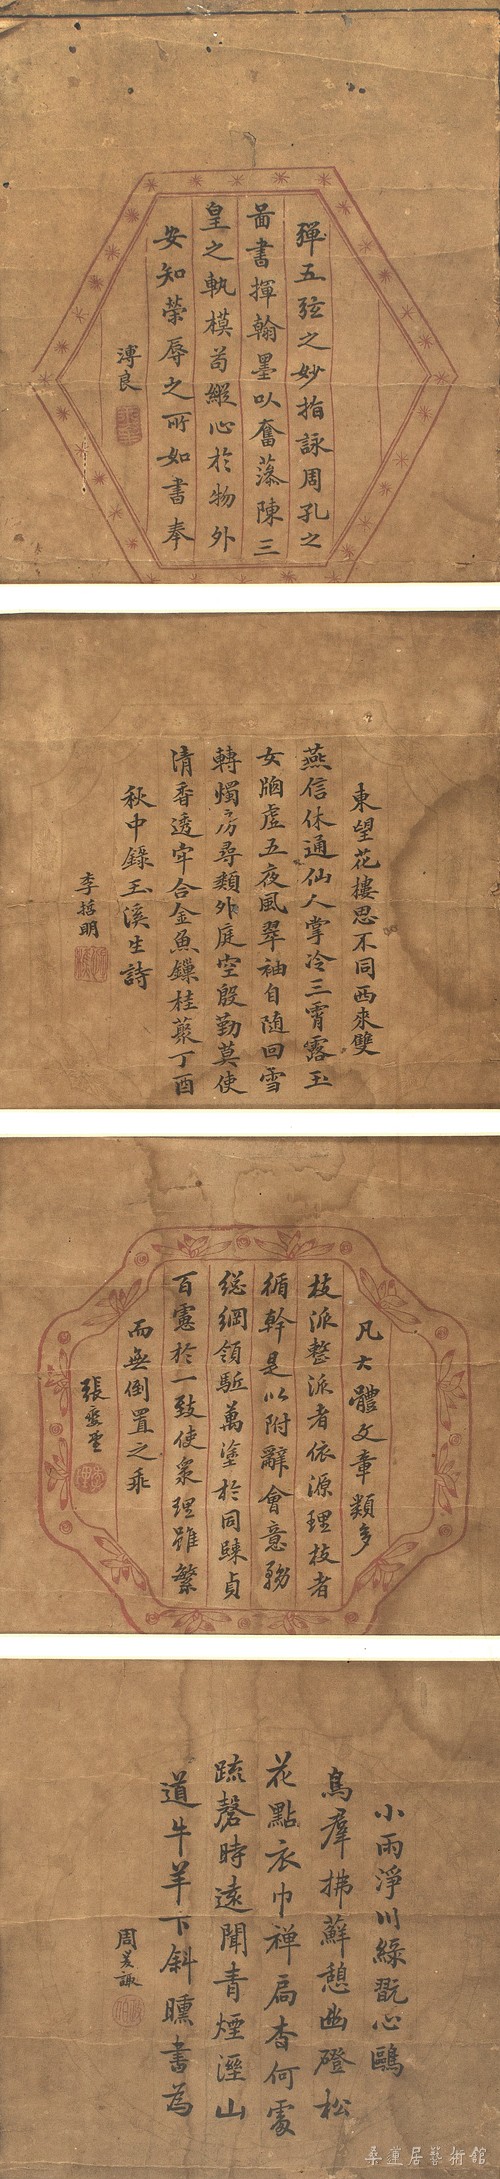 彈五弦之妙指詠周孔之
啚書揮翰墨以奮藻陳三
皇之軌模苟縱心於物外
安知榮辱之所如書奉
溥良
東望花樓思不同西來雙
燕信休通仙人掌冷三霄露玉
女牕虛五夜風翠袖自隨回雪
轉燭房尋類外庭空殷勤莫使
清香透牢合金魚鏁桂藂丁酉
秋中錄玉溪生詩
李哲明
凡大體文章類多
枝派整派者依源理枝者
循幹是以附辭會意務
總綱領駈萬塗於同歸貞
百慮於一致使衆理雖繁
而無倒置之乖
張
小雨淨川綠翫心鷗
鳥羣拂蘚憩幽磴松
花點衣巾禅扃杳何處
疏磬時遠聞青煙溼山
道牛羊下斜曛書為
周
桑蓮居藝術館